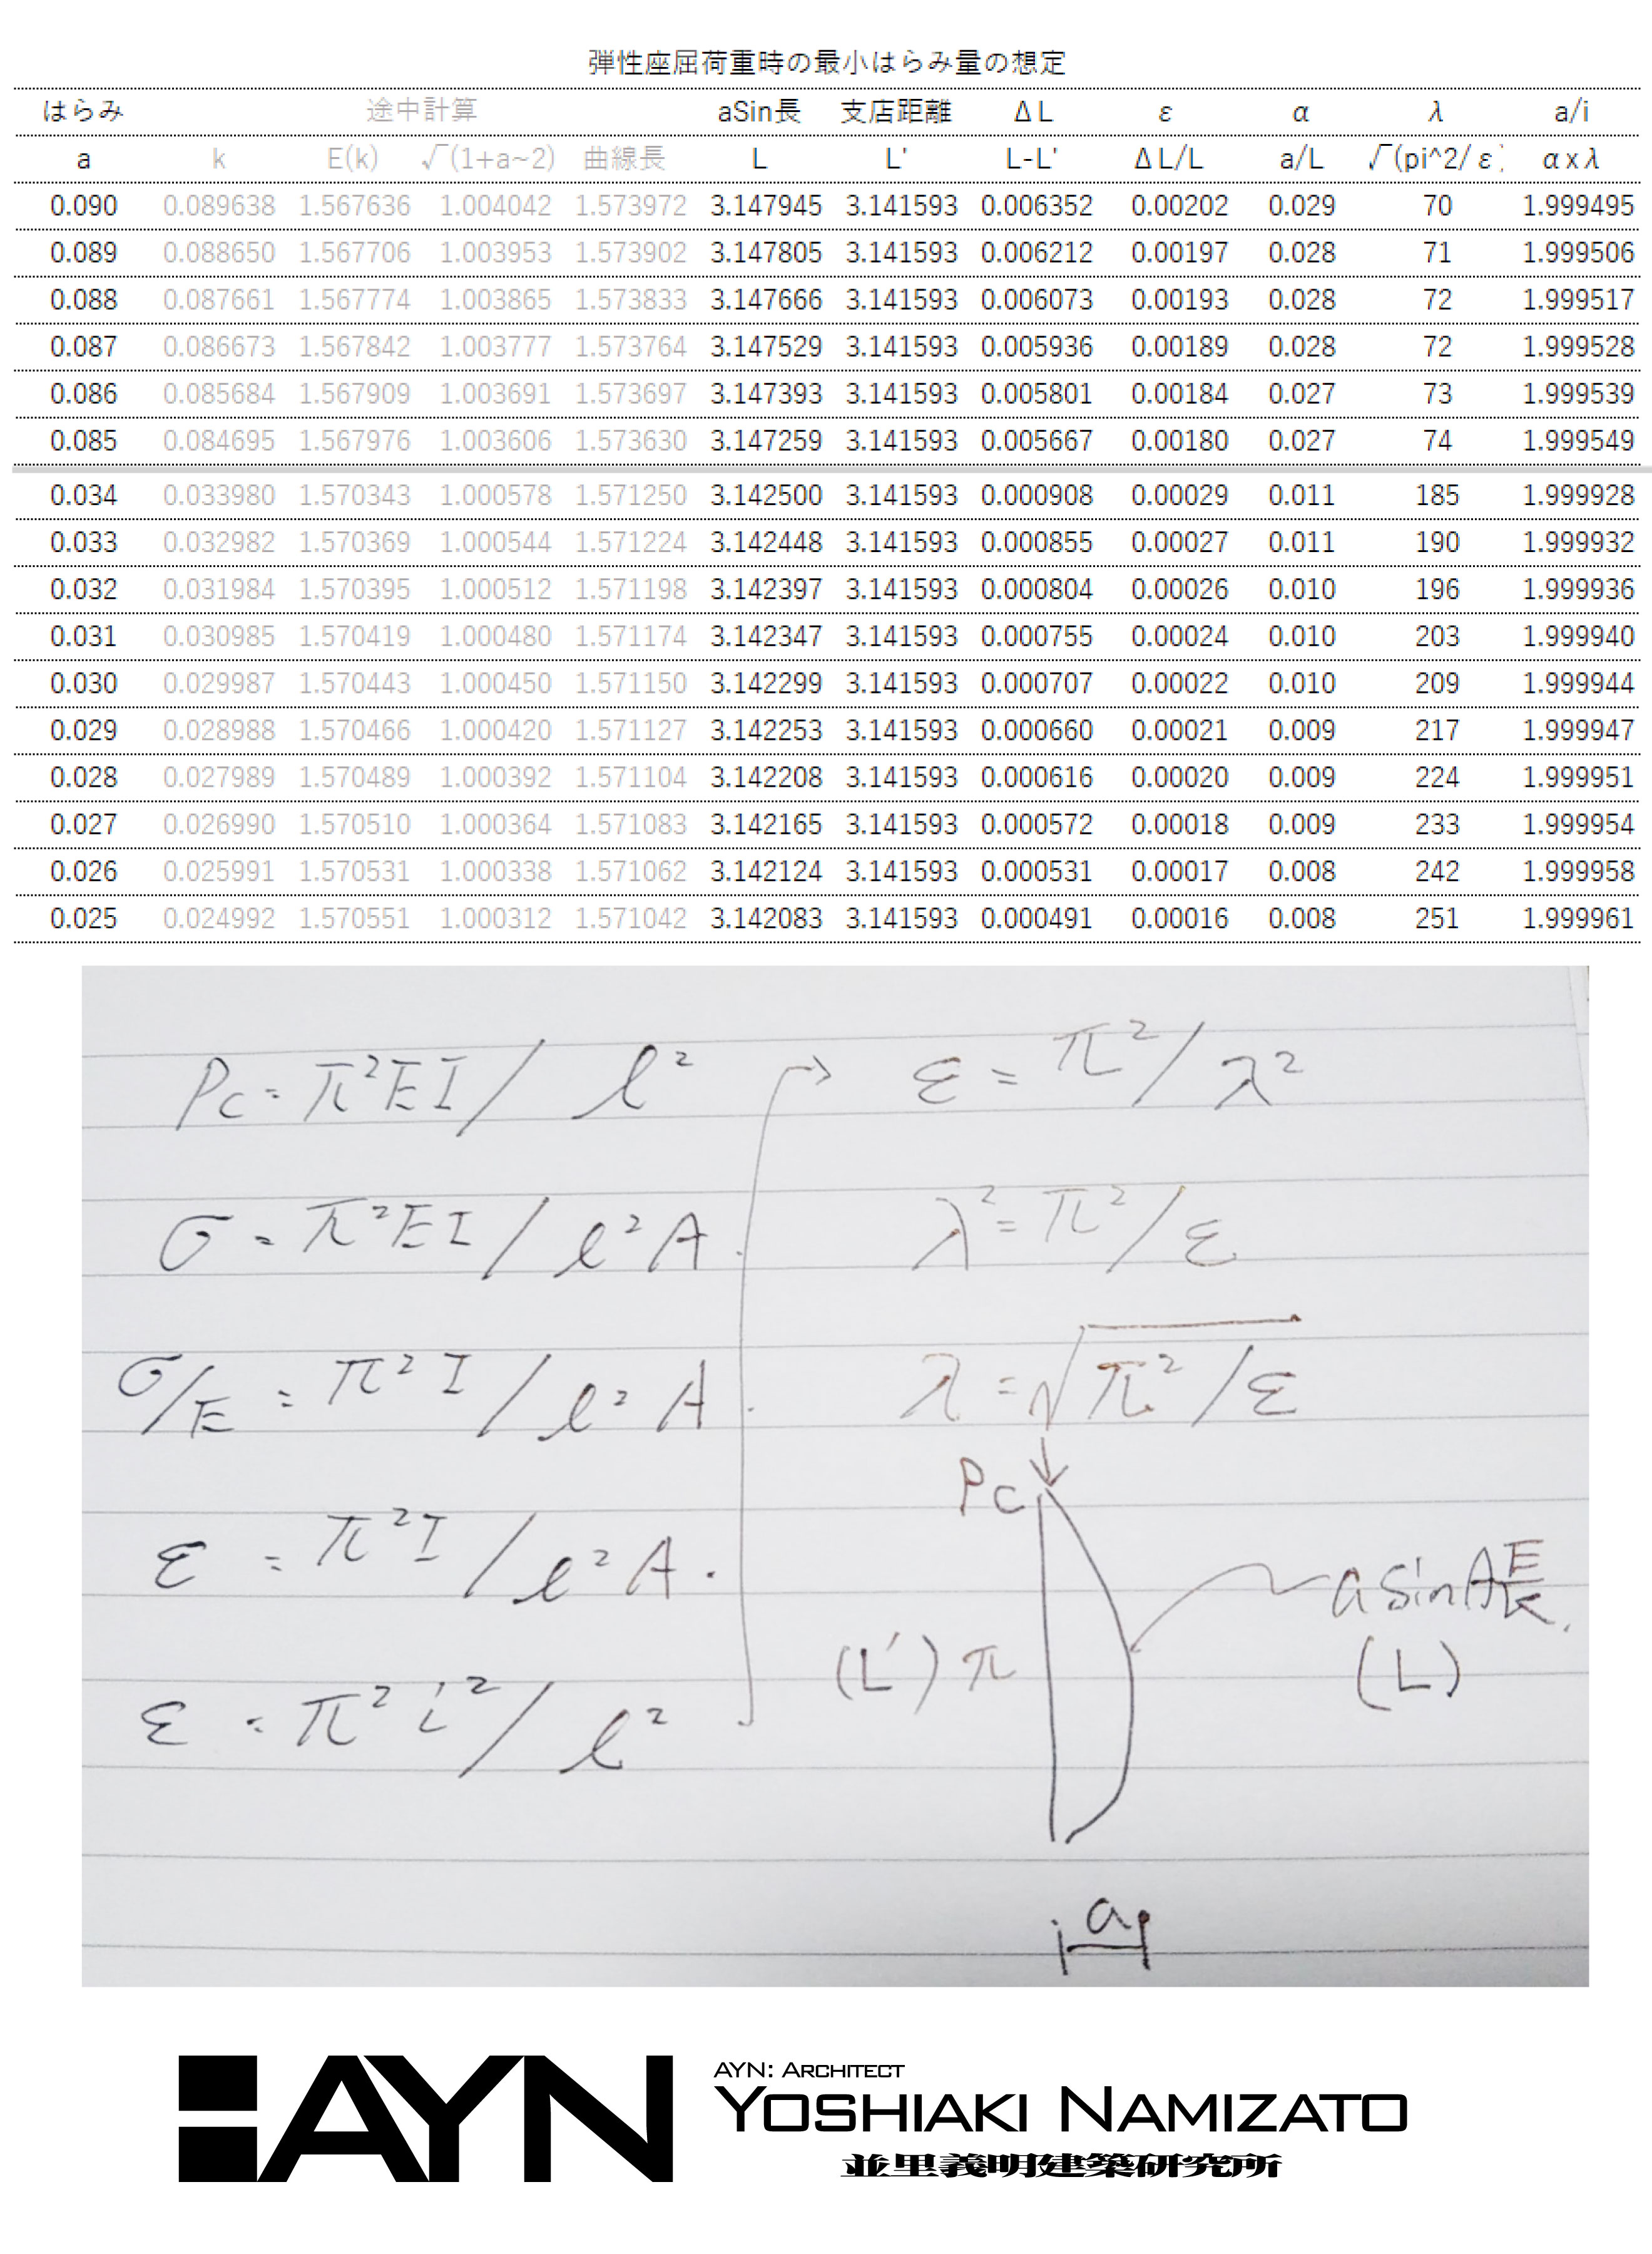 弾性座屈荷重時の最小はらみ量の想定
はらみ 途中計算 aSin長 支店距離 ΔL ε α λ a/i
a k E(k) √(1+a~2) 曲線長 L L' L-L' ΔL/L a/L √(pi^2/ε) αxλ
0.090 0.089638 1.567636 1.004042 1.573972 3.147945 3.141593 0.006352 0.00202 0.029 70 1.999495
0.089 0.088650 1.567706 1.003953 1.573902 3.147805 3.141593 0.006212 0.00197 0.028 71 1.999506
0.088 0.087661 1.567774 1.003865 1.573833 3.147666 3.141593 0.006073 0.00193 0.028 72 1.999517
0.087 0.086673 1.567842 1.003777 1.573764 3.147529 3.141593 0.005936 0.00189 0.028 72 1.999528
0.086 0.085684 1.567909 1.003691 1.573697 3.147393 3.141593 0.005801 0.00184 0.027 73 1.999539
0.085 0.084695 1.567976 1.003606 1.573630 3.147259 3.141593 0.005667 0.00180 0.027 74 1.999549
0.034 0.033980 1.570343 1.000578 1.571250 3.142500 3.141593 0.000908 0.00029 0.011 185 1.999928
0.033 0.032982 1.570369 1.000544 1.571224 3.142448 3.141593 0.000855 0.00027 0.011 190 1.999932
0.032 0.031984 1.570395 1.000512 1.571198 3.142397 3.141593 0.000804 0.00026 0.010 196 1.999936
0.031 0.030985 1.570419 1.000480 1.571174 3.142347 3.141593 0.000755 0.00024 0.010 203 1.999940
0.030 0.029987 1.570443 1.000450 1.571150 3.142299 3.141593 0.000707 0.00022 0.010 209 1.999944
0.029 0.028988 1.570466 1.000420 1.571127 3.142253 3.141593 0.000660 0.00021 0.009 217 1.999947
0.028 0.027989 1.570489 1.000392 1.571104 3.142208 3.141593 0.000616 0.00020 0.009 224 1.999951
0.027 0.026990 1.570510 1.000364 1.571083 3.142165 3.141593 0.000572 0.00018 0.009 233 1.999954
0.026 0.025991 1.570531 1.000338 1.571062 3.142124 3.141593 0.000531 0.00017 0.008 242 1.999958
0.025 0.024992 1.570551 1.000312 1.571042 3.142083 3.141593 0.000491 0.00016 0.008 251 1.999961
Pc = π²EI / ℓ²
σ = π²EI / ℓ²A.
σ/E = π²I / ℓ²A.
ε = π²I / ℓ²A.
ε = π²i² / ℓ²
ε = π²/λ²
λ² = π²/ε
λ = √π²/ε
Pc
a sinA長.
(L') π
(L)
a
AYN
AYN: ARCHITECT
YOSHIAKI NAMIZATO
並里義明建築研究所